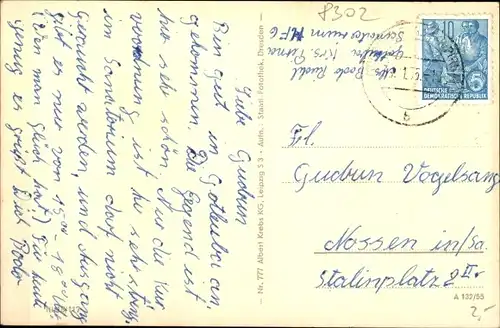 8302
Liebe Gudrun
Bin gut in Gottleuba an-
gekommen. Die Gegend ist
hier sehr schön. Nur die Kur
verordnung ist hie sehr streng.
im Sanatorium darf nicht
geraucht werden, und Ausgang
gibt es nur von 15.00 - 18.00 Uhr
(Wenn man Glück hat!) Für heute
genug es grüßt Dich
- Nr. 777 Albert Krebs KG, Leipzig S 3 - Aufn.: Staatl. Fotothek, Dresden -
Gottleuba Krs. Pirna
Sanatorium
10
DEUTSCHE
DEMOKRATISCHE REPUBLIK
b
Frl.
Gudrun Vogelsang
Nossen in/Sa.
Stalinplatz 2 II.
A 132/55
2,-